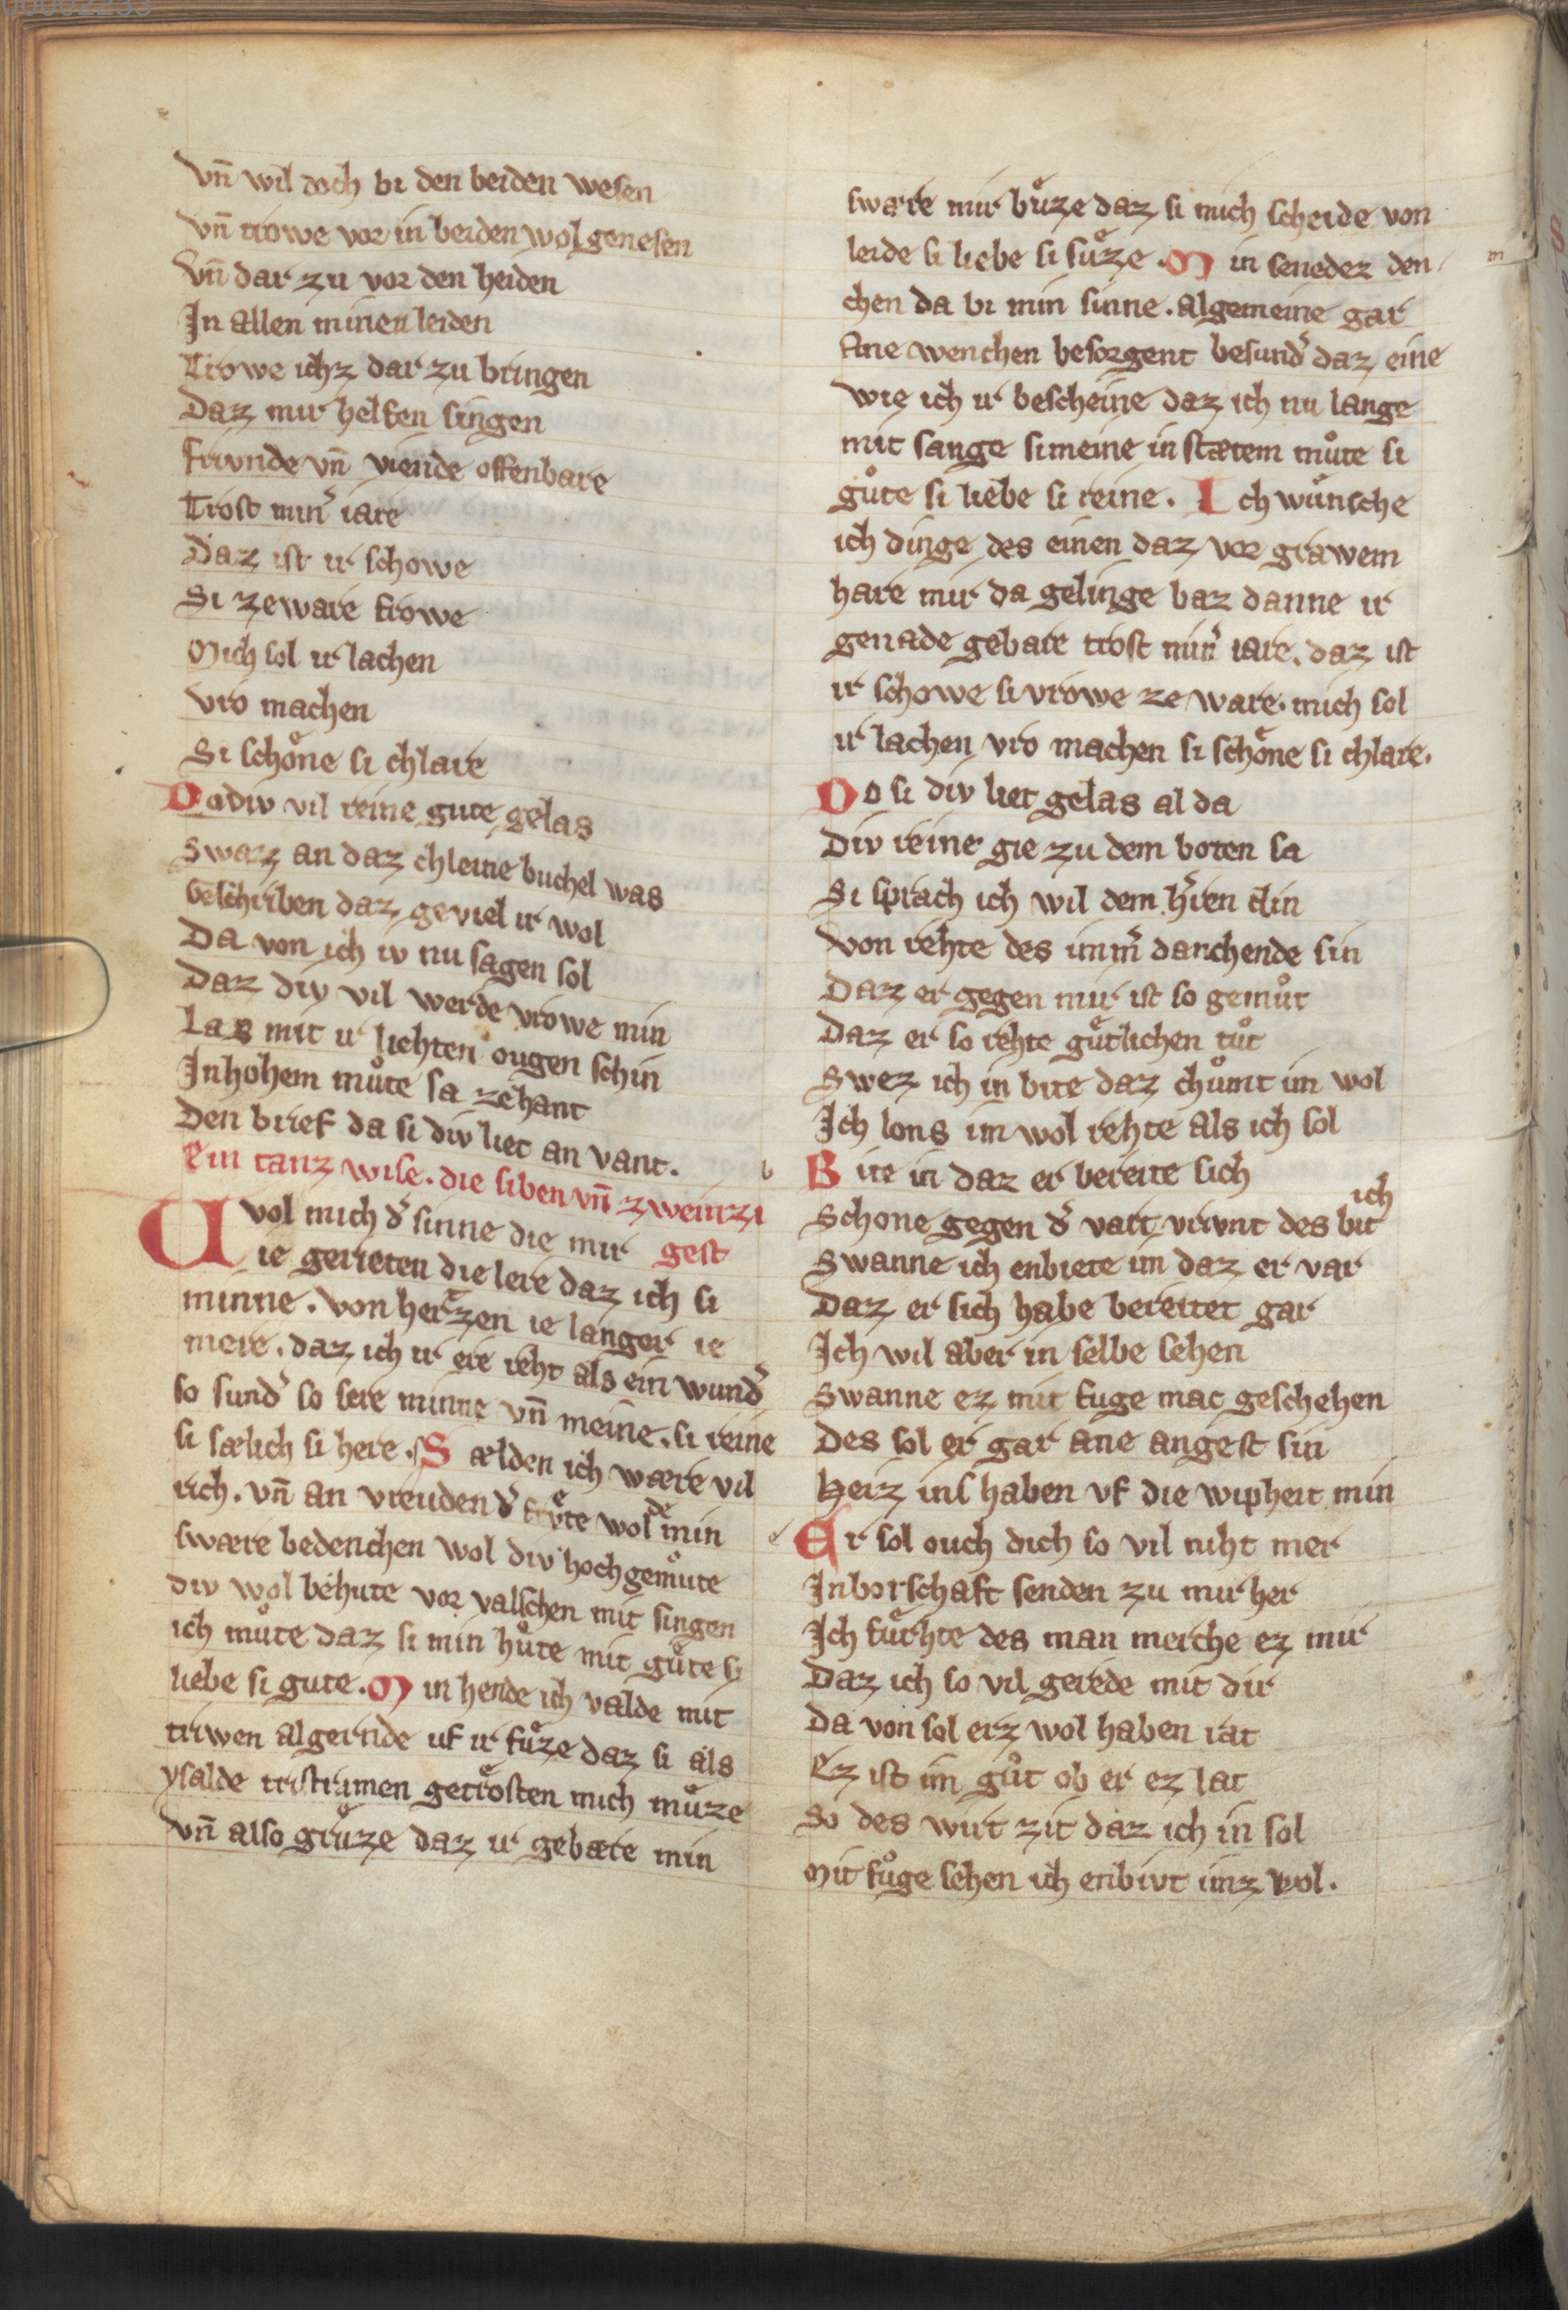 Vn̄ wil doch bi den beiden wesen
vn̄ trowe vor in beiden wol genesen
Vn̄ dar zu vor den heiden
In allen minen leiden
Trowe ichz dar zu bringen
Daz mir helfen singen
frivnde vn̄ viende offenbare
Trost min̾ iare
Daz ist ir schowe
Si zeware frowe
Mich sol ir lachen
vro machen
Si schoͤne si chlare
Do div vil reine gute gelas
Swaz an daz chleine buchel was
beschriben daz geviel ir wol
Da von ich iv nu sagen sol
Daz div vil werde vrowe min
Las mit ir liehten ougen schin
In hohem muͦte sa zehant
Den brief da si div liet an vant.
Ein tanz wise. die siben vn̄ zweinzi
gest
Wol mich d̾ sinne die mir
ie gerieten die lere daz ich si
minne. von herzen ie langer ie
mere. daz ich ir ere reht als ein wund̾
so sund̾ so sere minne vn̄ meine. si reine
si sælich si here. Sælden ich wære vil
rich. vn̄ an vreuden d̾ fruͤte wolde min
swære bedenchen wol div hochgemuͦte
div wol behute vor valschen mit singen
ich muͦte daz si min huͤte mit guͤte si
liebe si gute. Min hende ich valde mit
triwen algernde uf ir fuͤze daz si als
ysalde tristramen getroͤsten mich muͤze
vn̄ also gruͤze daz ir gebæte min
swære mir buͤze daz si mich scheide von
leide si liebe si suͤze. Min senedez den
m
chen da bi min sinne. algemeine gar
Ane wenchen besorgent besund̾ daz eine
wie ich ir bescheine daz ich nu lange
mit sange si meine in stætem muͦte si
guͦte si liebe si reine. Ich wuͤnsche
ich dinge des einen daz vor grawem
hare mir da gelinge baz danne ir
genade gebare trost min̾ iare. daz ist
ir schowe si vrowe ze ware. mich sol
ir lachen vro machen si schoͤne si chlare.
Do si div liet gelas al da
Div reine gie zu dem boten sa
Si sprach ich wil dem h̾ren din
von rehte des imm̾ danchende sin
Daz er gegen mir ist so gemuͦt
Daz er so rehte guͤtlichen tuͦt
Swez ich in bite daz chuͦmt im wol
Ich lons im wol rehte als ich sol
b
Bite in daz er bereite sich
Schone gegen d̾ vart vrivnt des bit ich
Swanne ich enbiete im daz er var
Daz er sich habe bereitet gar
Ich wil aber in selbe sehen
Swanne ez mit fuge mac geschehen
Des sol er gar ane angest sin
Herz ins haben vf die wipheit min
e
Er sol ouch dich so vil niht mer
In borschaft senden zu mir her
Ich fuͤrhte des man merche ez mir
Daz ich so vil gerede mit dir
Da von sol erz wol haben rat
Ez ist im guͦt ob er ez lat
So des wirt zit daz ich in sol
Mit fuͦge sehen ich enbivt imz wol.